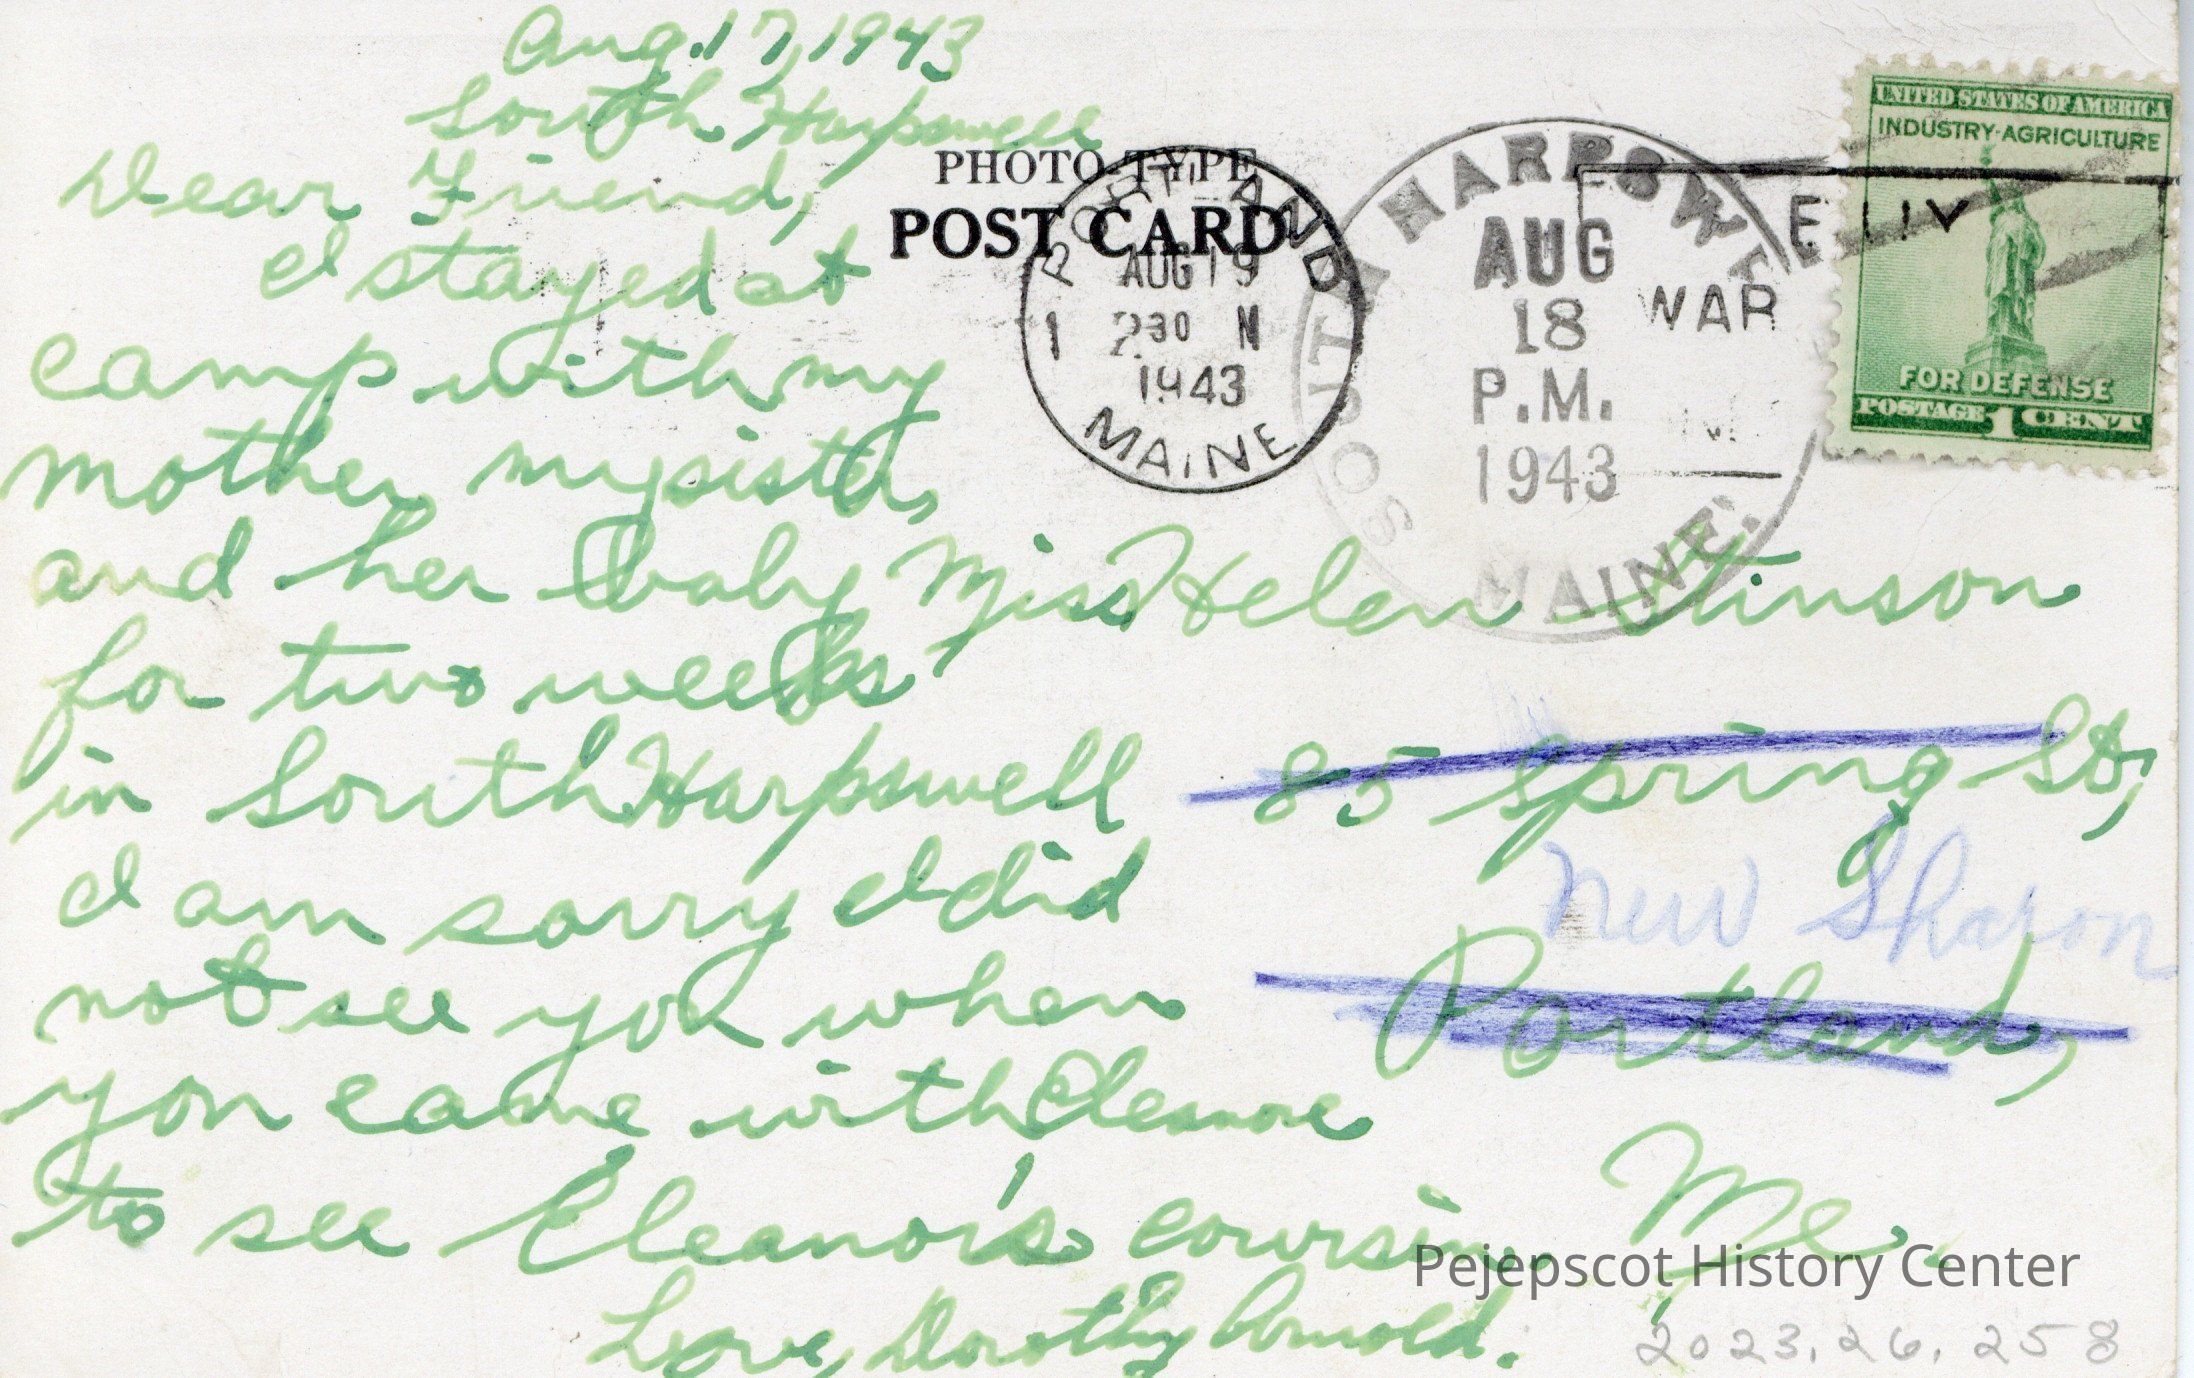 Aug. 17, 1943
South Harpswell
Dear Friend,
I stayed at
camp with my
mother, my sister,
and her baby
for two weeks
in South Harpswell
I am sorry I did
not see you when
you came with Eleanore
to see Eleanor's coursin
Love, Dorothy Arnold.
PHOTO-TYPE
POST CARD
PORTLAND
AUG 19
1 230
1943
MAINE
SOUTH HARPSWELL
AUG
18
P.M.
1943
MAINE.
WAR
UNITED STATES OF AMERICA
INDUSTRY·AGRICULTURE
FOR DEFENSE
POSTAGE 1 CENT
Miss Helen Stinson
85 Spring St,
New Sharon
Portland,
Me.
Pejepscot History Center
2023.26.258